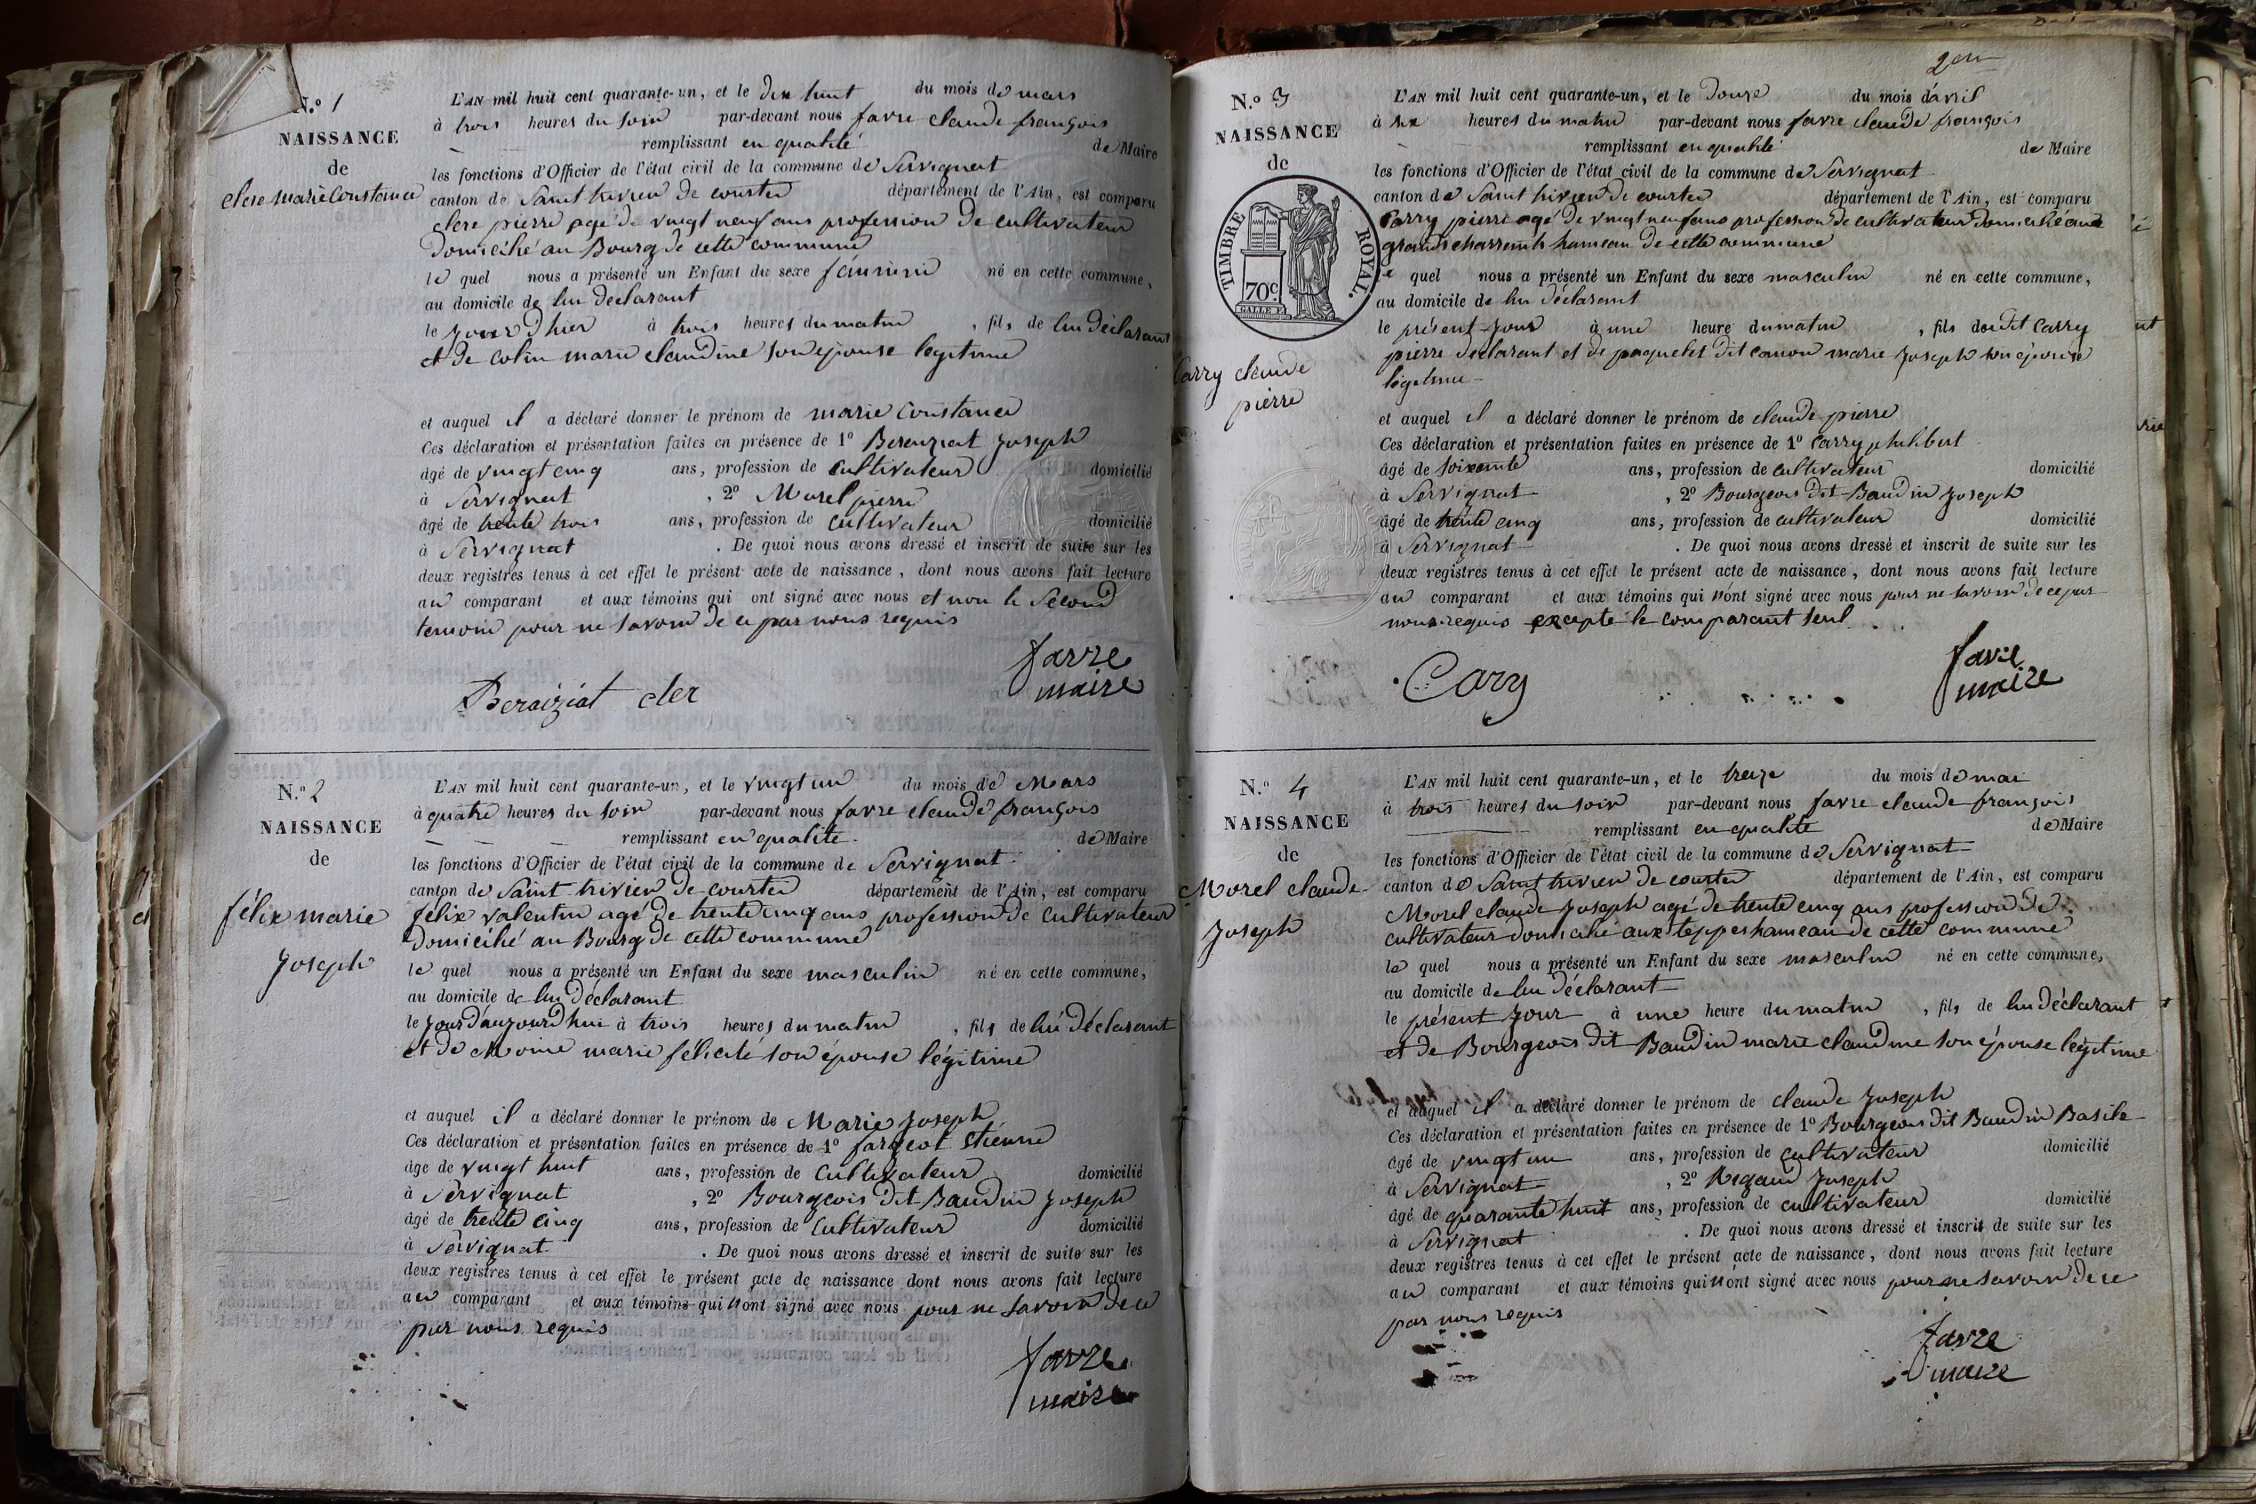 N.º 1
NAISSANCE
de
clere marie Constance
L'AN mil huit cent quarante-un, et le dix huit du mois de mars
à trois heures du soir par-devant nous favre claude françois
remplissant en qualité de Maire
les fonctions d'Officier de l'état civil de la commune de Servignat
canton de Saint trivier de courtes département de l'Ain, est comparu
clere pierre agé de vingt neuf ans profession de cultivateur
Domicilié au Bourg de cette commune
le quel nous a présenté un Enfant du sexe féminin né en cette commune,
au domicile de lui déclarant
le jour d'hier à trois heures du matin, fils de lui déclarant
et de colin marie claudine son épouse legitime
et auquel il a déclaré donner le prénom de marie Constance
Ces déclaration et présentation faites en présence de 1º Beraiziat Joseph
âgé de vingt cinq ans, profession de cultivateur domicilié
à Servignat, 2º Morel pierre
âgé de trente trois ans, profession de cultivateur domicilié
à Servignat. De quoi nous avons dressé et inscrit de suite sur les
deux registres tenus à cet effet le présent acte de naissance, dont nous avons fait lecture
au comparant et aux témoins qui ont signé avec nous et non le Second
temoin pour ne savoir de ce par nous requis
Beraiziat cler
favre
maire
N.º 2
NAISSANCE
de
félix marie
Joseph
L'AN mil huit cent quarante-un, et le vingt un du mois de Mars
à quatre heures du soir par-devant nous favre claude françois
remplissant en qualité de Maire
les fonctions d'Officier de l'état civil de la commune de Servignat
canton de Saint trivier de courtes département de l'Ain, est comparu
félix valentin agé de trente cinq ans profession de cultivateur
Domicilié au Bourg de cette commune
le quel nous a présenté un Enfant du sexe masculin né en cette commune,
au domicile de lui déclarant
le jour d'aujourd'hui à trois heures du matin, fils de lui déclarant
et de Moine marie félicité son épouse légitime
et auquel il a déclaré donner le prénom de Marie Joseph
Ces déclaration et présentation faites en présence de 1º fargeot Etienne
âgé de vingt huit ans, profession de cultivateur domicilié
à Servignat, 2º Bourgeois dit Baudin Joseph
âgé de trente cinq ans, profession de cultivateur domicilié
à Servignat. De quoi nous avons dressé et inscrit de suite sur les
deux registres tenus à cet effet le présent acte de naissance dont nous avons fait lecture
au comparant et aux témoins qui n'ont signé avec nous pour ne savoir de ce
par nous requis
favre
maire
N.º 3
NAISSANCE
de
TIMBRE ROYAL.
70c.
Carry claude
pierre
L'AN mil huit cent quarante-un, et le douze du mois d'avril
à six heures du matin par-devant nous favre claude françois
remplissant en qualité de Maire
les fonctions d'Officier de l'état civil de la commune de Servignat
canton de Saint trivier de courtes département de l'Ain, est comparu
Carry pierre agé de vingt neuf ans profession de cultivateur domicilié aux
grands hameau de cette commune
le quel nous a présenté un Enfant du sexe masculin né en cette commune,
au domicile de lui déclarant
le présent jour à une heure du matin, fils du dit Carry
pierre déclarant et de paquelet dit canon marie Joseph son épouse
légitime
et auquel il a déclaré donner le prénom de claude pierre
Ces déclaration et présentation faites en présence de 1º Carry philibert
âgé de soixante ans, profession de cultivateur domicilié
à Servignat, 2º Bourgeois dit Baudin Joseph
âgé de trente cinq ans, profession de cultivateur domicilié
à Servignat. De quoi nous avons dressé et inscrit de suite sur les
deux registres tenus à cet effet le présent acte de naissance, dont nous avons fait lecture
au comparant et aux témoins qui n'ont signé avec nous pour ne savoir de ce par
nous requis excepté le comparant seul
Cary
favre
maire
N.º 4
NAISSANCE
de
Morel claude
Joseph
L'AN mil huit cent quarante-un, et le treize du mois de mai
à trois heures du soir par-devant nous favre claude françois
remplissant en qualité de Maire
les fonctions d'Officier de l'état civil de la commune de Servignat
canton de Saint trivier de courtes département de l'Ain, est comparu
Morel claude Joseph agé de trente cinq ans profession de
cultivateur domicilié aux teppes hameau de cette commune
le quel nous a présenté un Enfant du sexe masculin né en cette commune,
au domicile de lui déclarant
le présent jour à une heure du matin, fils de lui déclarant
et de Bourgeois dit Baudin marie claudine son épouse légitime
et auquel il a déclaré donner le prénom de claude Joseph
Ces déclaration et présentation faites en présence de 1º Bourgeois dit Baudin Basile
âgé de vingt un ans, profession de cultivateur domicilié
à Servignat, 2º Rigaud Joseph
âgé de quarante huit ans, profession de cultivateur domicilié
à Servignat. De quoi nous avons dressé et inscrit de suite sur les
deux registres tenus à cet effet le présent acte de naissance, dont nous avons fait lecture
au comparant et aux témoins qui n'ont signé avec nous pour ne savoir de ce
par nous requis
favre
maire